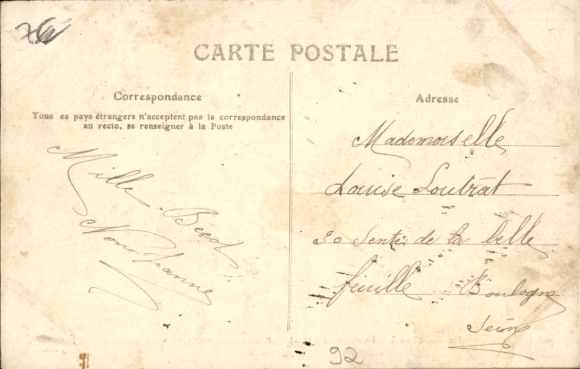 CARTE POSTALE
Correspondance
Tous es pays étrangers n'acceptent pas la correspondance
au recto, se renseigner à la Poste
Mille
Jeanne
Adresse
Mademoiselle
Louise Loutrat
30 Sente de la belle
feuille Boulogne
Seine
92